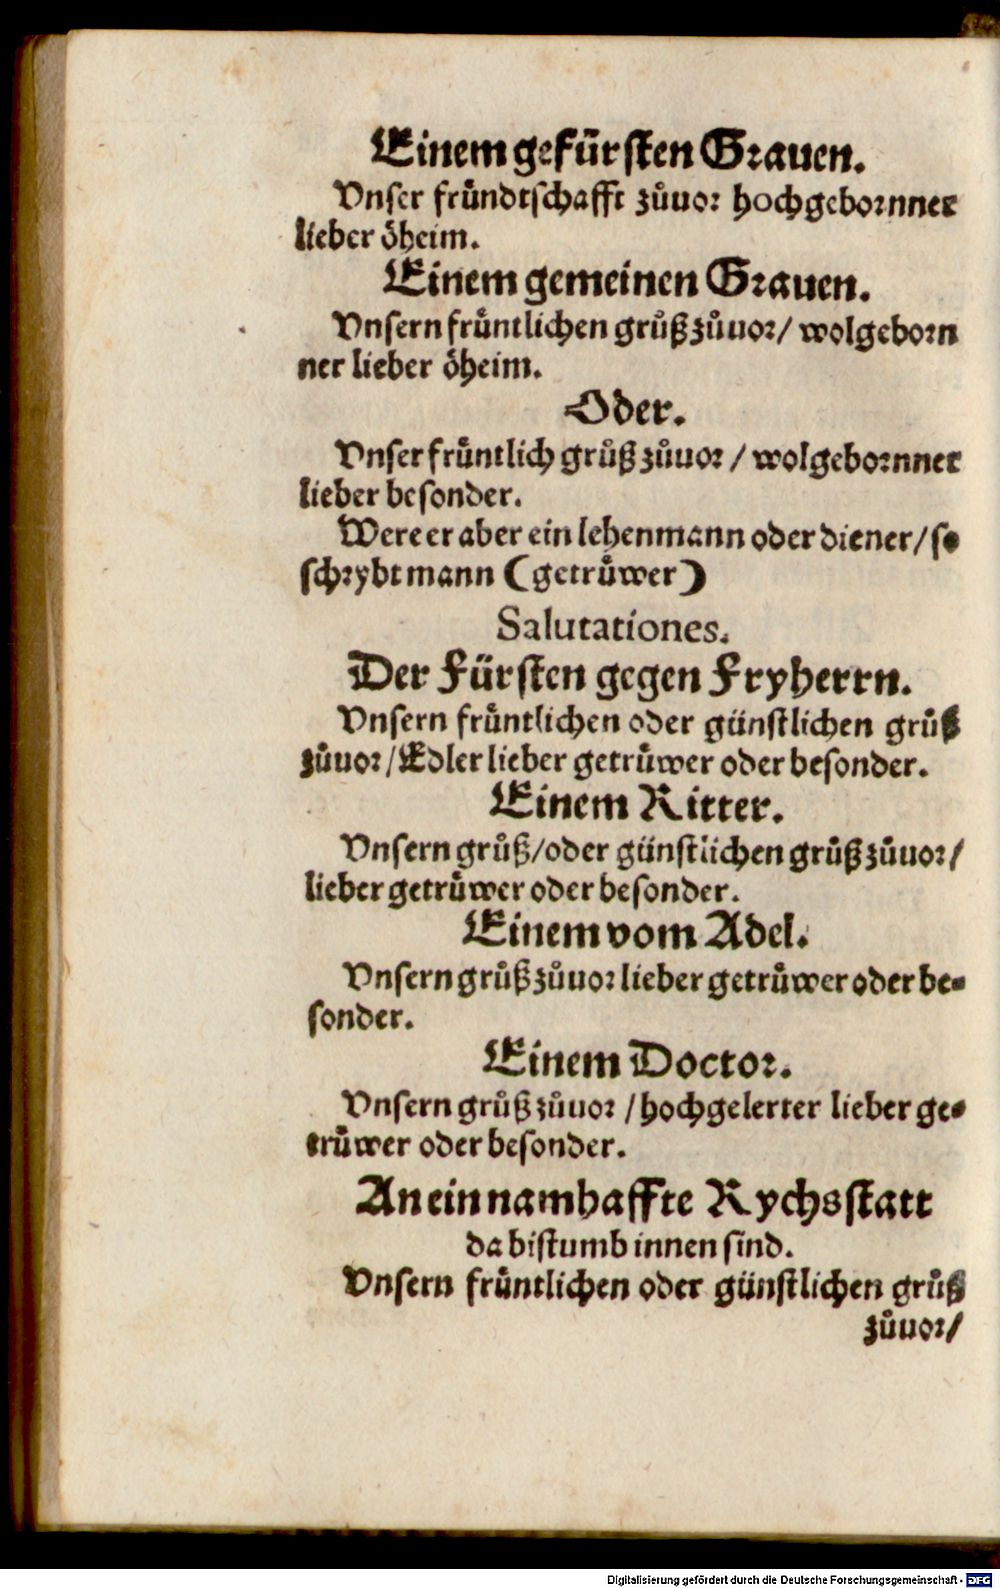 Einem gefürsten Grauen.
Vnser fründtschafft zůuor hochgebornner
lieber öheim.
Einem gemeinen Grauen.
Vnsern früntlichen grůß zůuor/ wolgeborn
ner lieber öheim.
Oder.
Vnser früntlich grůß zůuor / wolgebornner
lieber besonder.
Were er aber ein lehenmann oder diener/ so
schrybt mann (getrüwer)
Salutationes.
Der Fürsten gegen Fryherrn.
Vnsern früntlichen oder günstlichen grůß
zůuor/ Edler lieber getrüwer oder besonder.
Einem Ritter.
Vnsern grůß/oder günstlichen grůß zůuor/
lieber getrüwer oder besonder.
Einem vom Adel.
Vnsern grůß zůuor lieber getrüwer oder be-
sonder.
Einem Doctor.
Vnsern grůß zůuor / hochgelerter lieber ge-
trüwer oder besonder.
An ein namhaffte Rychsstatt
da bistumb innen sind.
Vnsern früntlichen oder günstlichen grůß
zůuor/
Digitalisierung gefördert durch die Deutsche Forschungsgemeinschaft - DFG